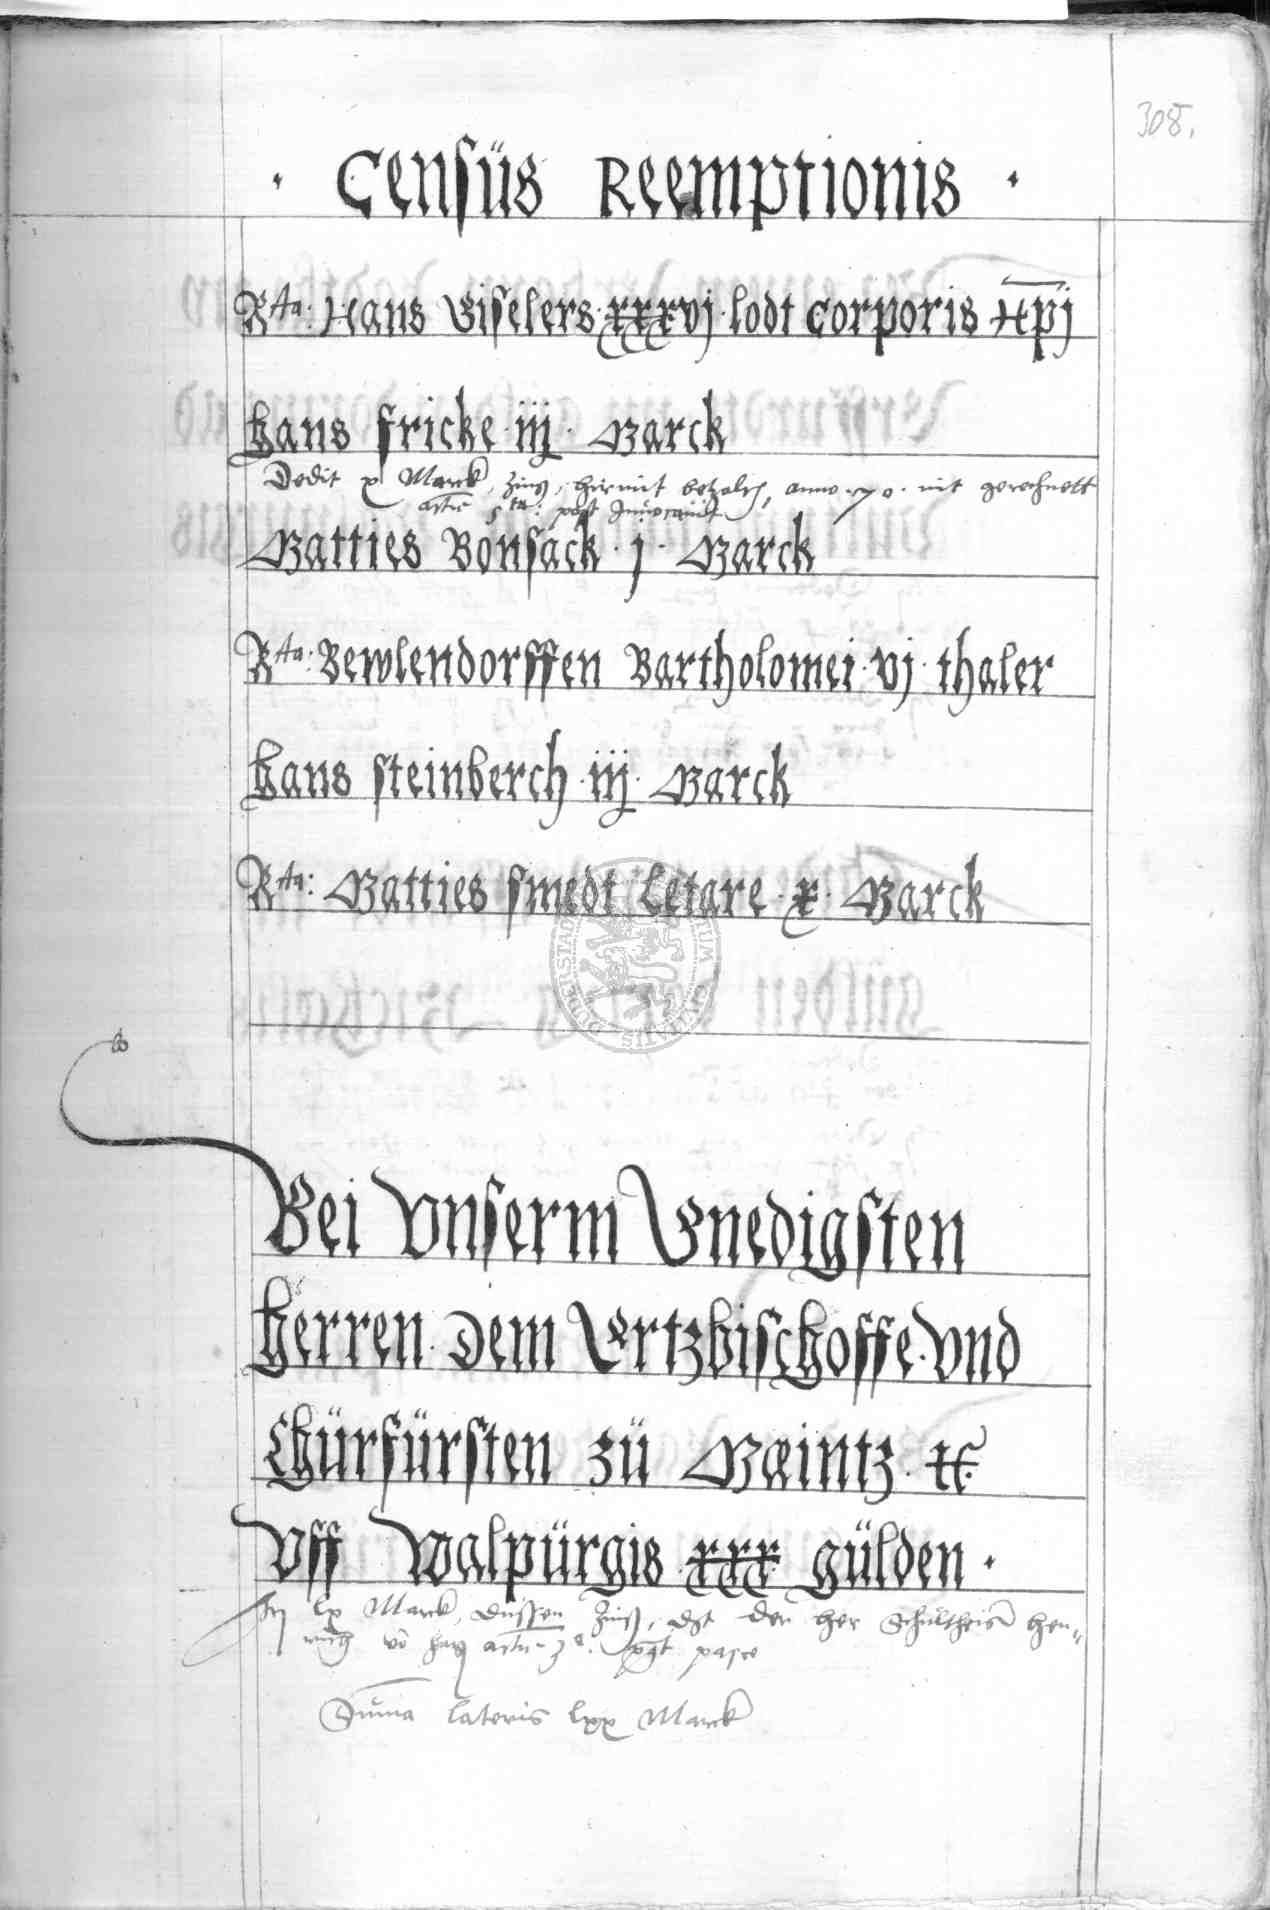 308.
· Censüs Reemptionis ·
Rta: Hans Giselers · xxxvj · lodt Corporis Xpi
Hans Fricke · iij · Marck
Dedit x Marck, Zins, hirmit betzalt, anno · 70 · mit gerechnett
actu 5ta: post Inuocauit
Matties Bonsack · j · Marck
Rta: Bewlendorffen Bartholomei · vj · thaler
Hans Steinberch · iij · Marck
Rta: Matties Smedt Letare · x · Marck
Bei Vnserm Gnedigsten
Herren · Dem Ertzbischoffe · Vnd
Chürfürsten zü Maeintz · etc.
Vff Walpürgis xxx gülden ·
lx Marck, dussen Zinß, der her Schultheis Hen-
actu 3a. post pasce
Suma lateris lxx Marck